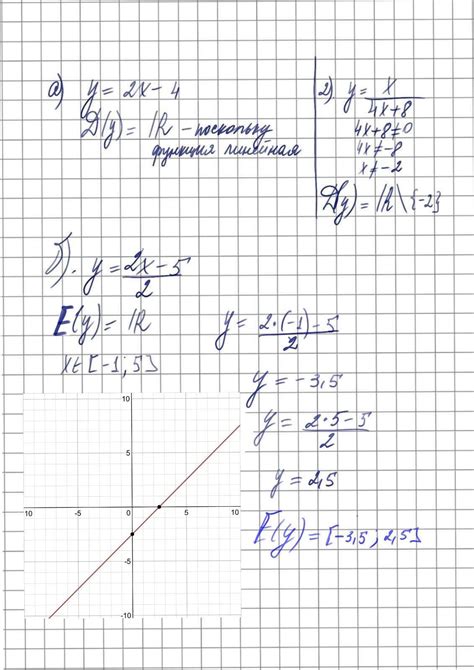 а) y = 2x - 4
D(y) = ℝ - поскольку
функция линейная
2) y = x/(4x+8)
4x+8≠0
4x≠-8
x≠-2
D(y) = ℝ \ {-2}
б). y = (2x-5)/2
E(y) = ℝ
x∈[-1;5]
y = (2·(-1)-5)/2
y = -3,5
y = (2·5-5)/2
y = 2,5
E(y) = [-3,5; 2,5]
10
5
10 -5 0 5 10
-5
-10